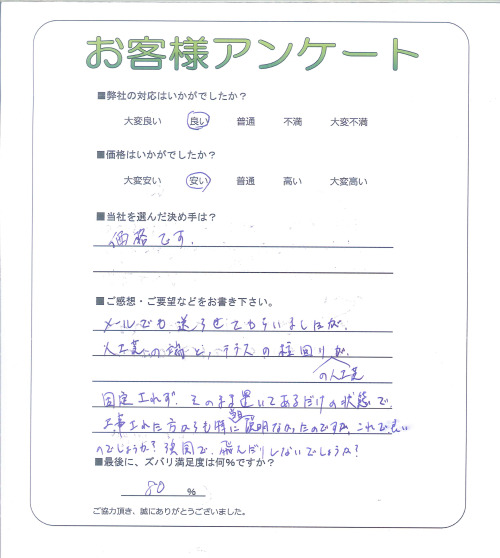 お客様アンケート
■弊社の対応はいかがでしたか?
大変良い 良い 普通 不満 大変不満
■価格はいかがでしたか?
大変安い 安い 普通 高い 大変高い
■当社を選んだ決め手は?
価格です.
■ご感想・ご要望などをお書き下さい。
メールでも送らせてもらいましたが、
人工芝の端と、テラスの柱回りが、
の人工芝
固定されず、そのまま置いてあるだけの状態で、
工事された方からも特に説明なかったのですが、これで良い
のでしょうか? 強風で、飛んだりしないでしょうか?
■最後に、ズバリ満足度は何%ですか?
80 %
ご協力頂き、誠にありがとうございました。